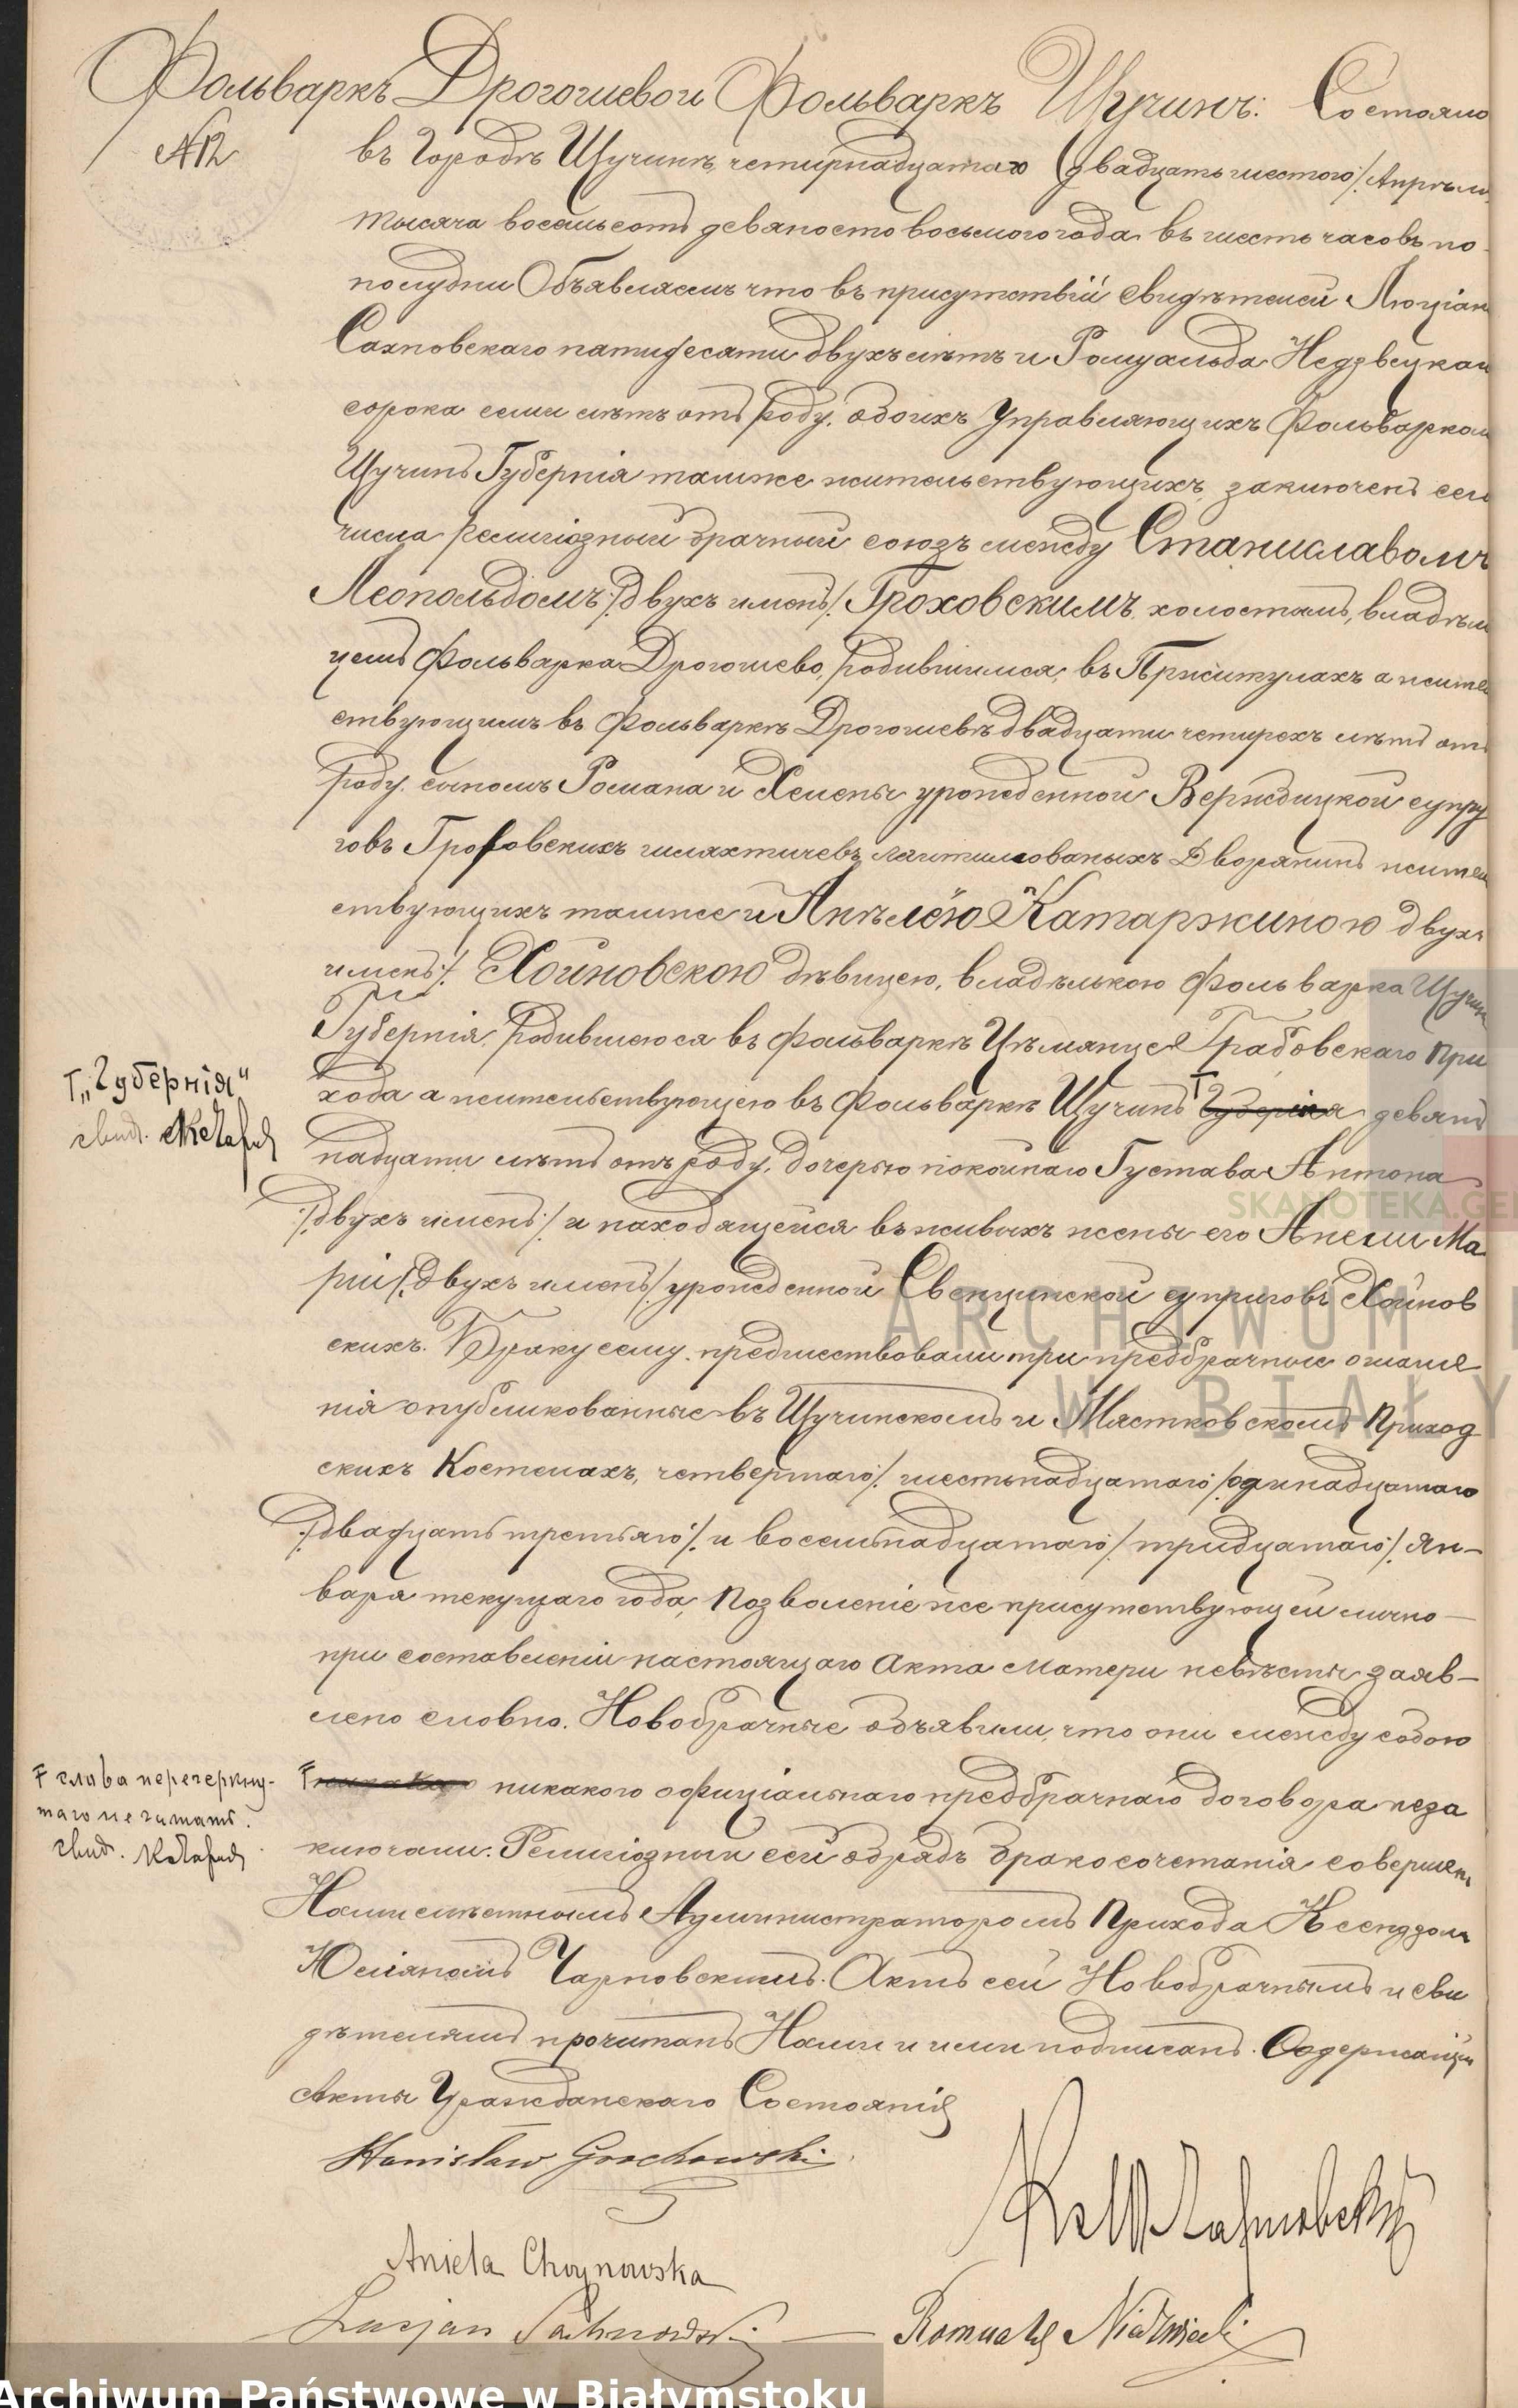 Фольваркъ Дрогошево и Фольваркъ Щучинъ: Состоялось
№ 12
въ Городѣ Щучинѣ, четырнадцатаго (двадцать шестого/: Апрѣля
тысяча восемьсотъ девяносто восьмого года въ шесть часовъ по
полудни Объявляемъ что въ присутствіи свидѣтелей Люціана
Сахновскаго пятидесяти двухъ лѣтъ и Ромуальда Недзвецкаго
сорока семи лѣтъ отъ роду, обоихъ Управляющихъ Фольваркомъ
Щучинъ Губернія тамже жительствующихъ, заключенъ сего
числа религіозный брачный союзъ между Станиславомъ
Леопольдомъ /:двухъ именъ/: Гроховскимъ, холостымъ, владѣль
цемъ Фольварка Дрогошево, родившимся, въ Пржитулахъ а житель
ствующимъ въ Фольваркѣ Дрогошевѣ двадцати четырехъ лѣтъ отъ
роду, сыномъ Романа и Хелены урожденной супру
говъ Гроховскихъ шляхтичевъ Дворянинъ житель
ствующихъ тамже и Анѣлею Катаржиною двухъ
именъ/: Хойновскою дѣвицею, владѣлькою Фольварка Щучинъ
Губернія, родившеюся въ Фольваркѣ Грабовскаго При
Т „Губернія"
хода а жительствующею въ Фольваркѣ Щучинъ Т Губернія девят
надцати лѣтъ отъ роду, дочерью покойнаго Густава Антона
/:двухъ именъ/: и находящейся въ живыхъ жены его Анели Ма
ріи /:двухъ именъ/ урожденной Свенцинской супруговъ Хойнов
скихъ. Браку сему предшествовали три предбрачные оглаше
нія опубликованные въ Щучинскомъ и Мястковскомъ Приход
скихъ Костелахъ, четвертаго/: шестьнадцатаго /:одинадцатаго
/:двадцать третьяго:/ и восемьнадцатаго/ тридцатаго:/ Ян-
варя текущаго года, Позволеніе же присутствующей лично
при составленіи настоящаго Акта Матери невѣсты заяв-
лено словно. Новобрачные объявили, что они между собою
Ŧ слова перечеркну-
таго не читать.
никакого офиціальнаго предбрачнаго договора неза
ключали. Религіозный сей обрядъ бракосочетанія совершенъ
Нами мѣстнымъ Администраторомъ Прихода Ксендзомъ
Юліаномъ Чарновскимъ. Актъ сей Новобрачнымъ и сви
дѣтелямъ прочитанъ Нами и ими подписанъ. Содержащій
Акты Гражданскаго Состоянія
Stanisław Grochowski
Aniela Choynowska
Lucjan Sachnowski
Romuald Niedźwiecki
SKANOTEKA.GE
ARCHIWUM
W BIAŁY
Archiwum Państwowe w Białymstoku